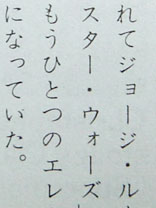 れてジョージ・ル
スター・ウォーズ
もうひとつのエレ
になっていた。